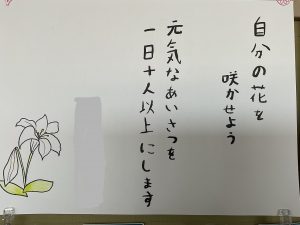 自分の花を
咲かせよう
元気なあいさつを
一日十人以上にします